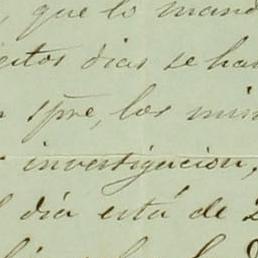 , que lo mand
estos dias se han
spre, los mis
investigacion,
dia está de 2